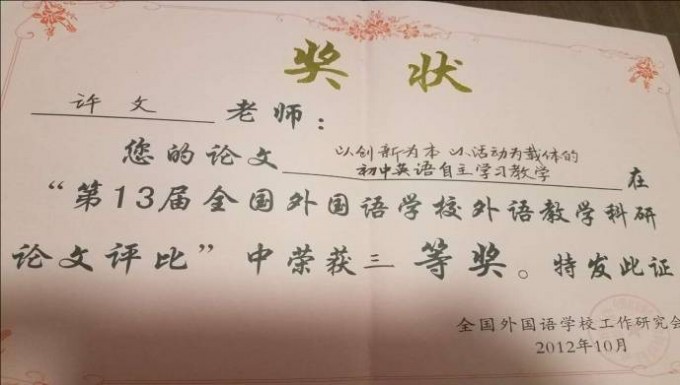 奖 状
许 文 老师：
您的论文 以创新为本 以活动为载体的
初中英语自主学习教学 在
“第13届全国外国语学校外语教学科研
论文评比”中荣获三等奖。特发此证
全国外国语学校工作研究会
2012年10月